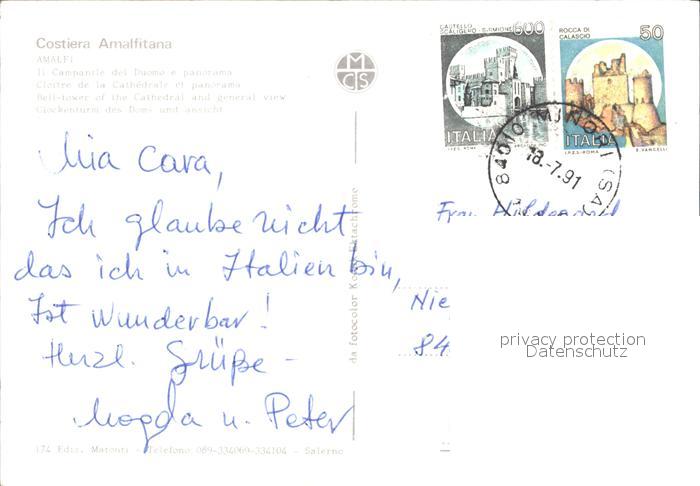 Costiera Amalfitana
AMALFI
Il Campanile del Duomo e panorama
Cloitre de la Cathédrale et panorama
Bell-tower of the Cathedral and general view
Glockenturm des Doms und ansicht
MCS
CASTELLO SCALIGERO - SIRMIONE 600
ITALIA
I.P.Z.S. ROMA
ROCCA DI CALASCIO 50
ITALIA
I.P.Z.S. - ROMA E. VANGELLI
84010 MINORI (SA)
18.-7.91
Mia Cara,
Ich glaube nicht
das ich in Italien bin,
Ist wunderbar!
Herzl. Grüße -
Magda u. Peter
da fotocolor Kodak Ektachrome
Frau Hildegard
Nie
84
privacy protection
Datenschutz
174 Ediz. Matonti - Telefono 089-334069-334104 - Salerno